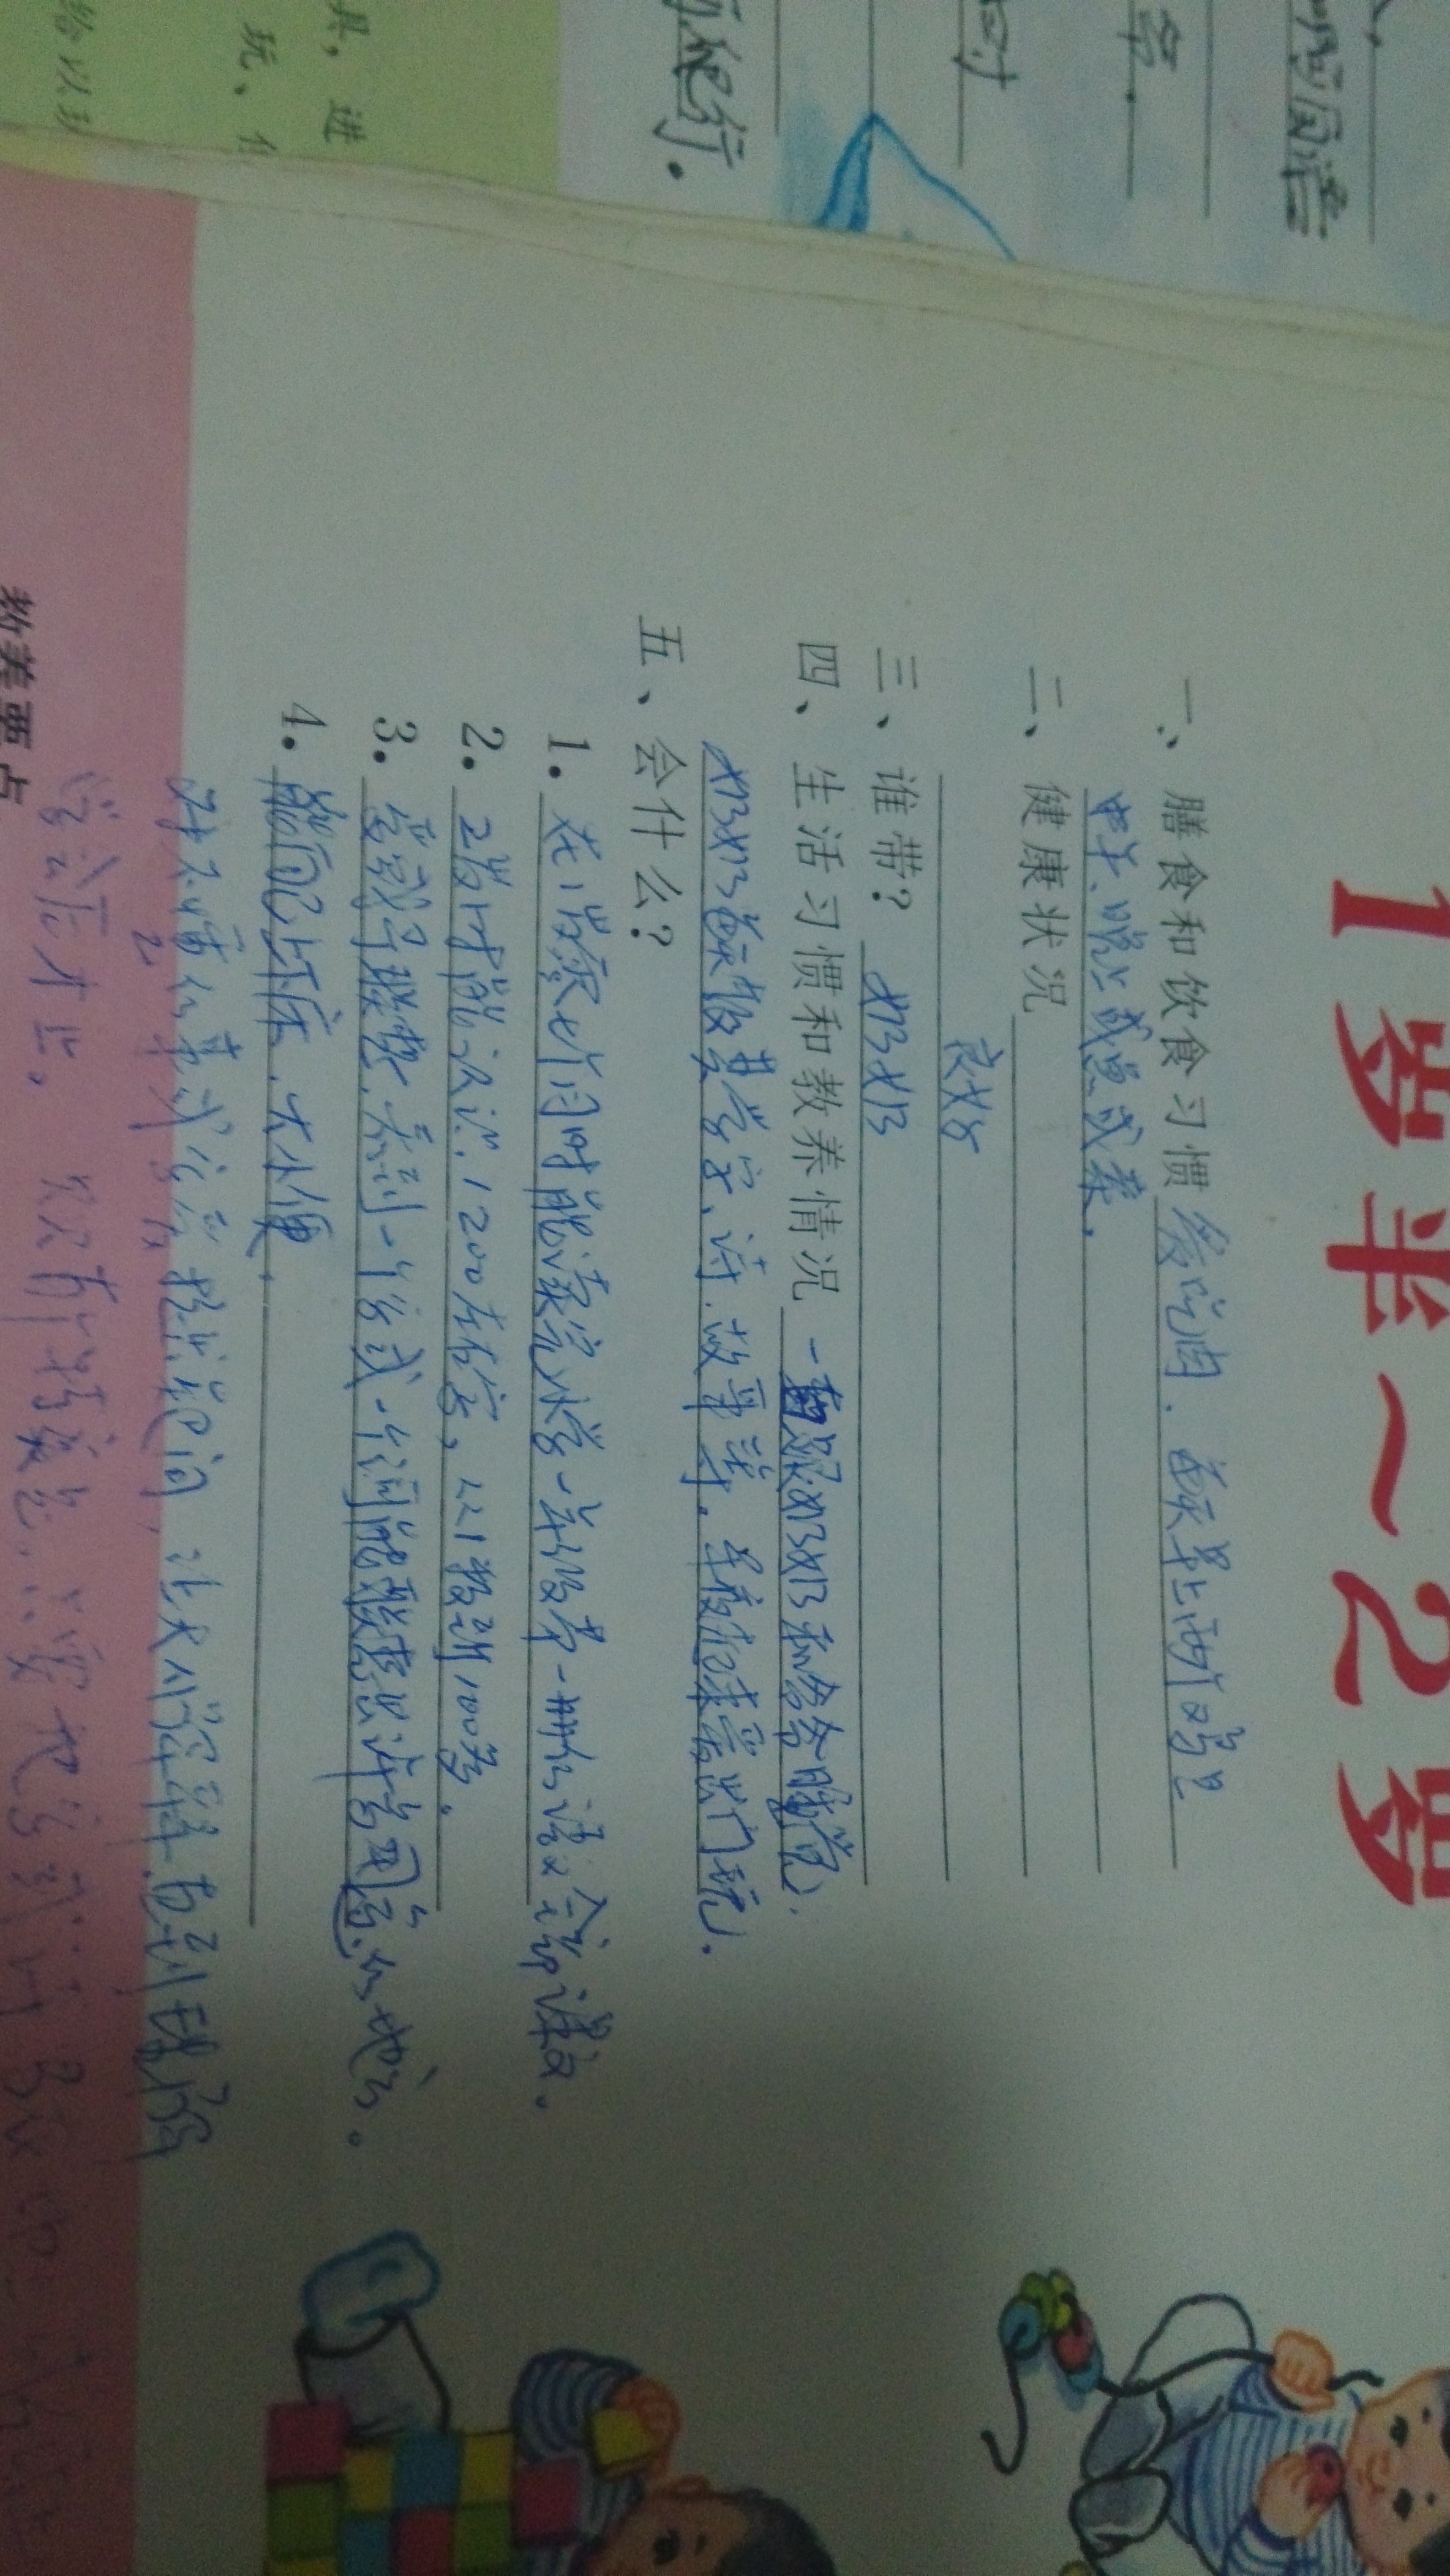 1岁半～2岁
一、膳食和饮食习惯 爱吃肉．每天早上两个鸡旦
中午、晚上或鱼或菜．
二、健康状况
良好
三、谁带？ 奶奶
四、生活习惯和教养情况 一直跟奶奶和爷爷睡觉．
奶奶每天教其学字、诗．故事等．早夜起来爱出门玩．
五、会什么？
1. 在1岁零七个月时能读完小学一年级第一册的语文全部课文。
2. 2岁时能认识1200左右字，从1数到100多。
3. 联想．看到一个字或一个词能联想出许多用
4. 能自己上下床．大小便．
对不懂的事或字爱提出疑问，让大人解释．直到理解
学会后才止。 只要把字或
教养要点
爬行．
具，进
玩、
给以